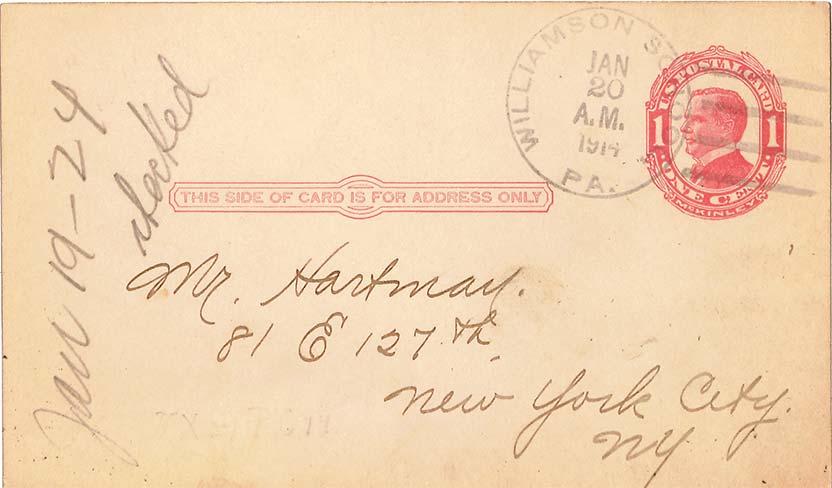 WILLIAMSON SCHOOL
JAN
20
A.M.
1914
PA.
U.S. POSTAL CARD
1 1
ONE CENT
McKINLEY
THIS SIDE OF CARD IS FOR ADDRESS ONLY
Jan 19-24
Mr. Hartman.
81 E 127th
New York City.
NY